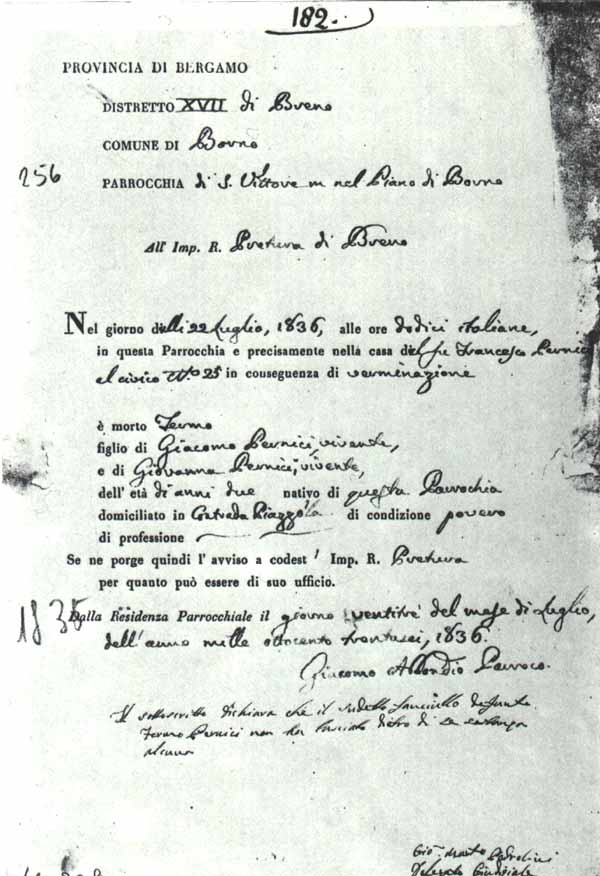 182.
PROVINCIA DI BERGAMO
DISTRETTO XVII di Breno
COMUNE DI Borno
256
PARROCCHIA di S. Vittore m nel Piano di Borno
All' Imp. R. Pretura di Breno
Nel giorno delli 22 Luglio, 1836, alle ore dodici italiane,
in questa Parrocchia e precisamente nella casa del fu Francesco Pernici
al civico N.o 25 in conseguenza di verminazione
è morto Fermo
figlio di Giacomo Pernici, vivente,
e di Giovanna Pernici, vivente,
dell' età di anni due nativo di questa Parrochia
domiciliato in Contrada Piazzola di condizione povero
di professione
Se ne porge quindi l' avviso a codest' Imp. R. Pretura
per quanto può essere di suo ufficio.
1835
Dalla Residenza Parrocchiale il giorno ventitrè del mese di Luglio,
dell' anno mille ottocento trentasei, 1836.
Giacomo Abondio Parroco.
Il sottoscritto dichiara che il sudetto fanciullo defunto
Fermo Pernici non ha lasciato dietro di se sostanza
alcuna
Gio. Maria
Delegato Giudiziale